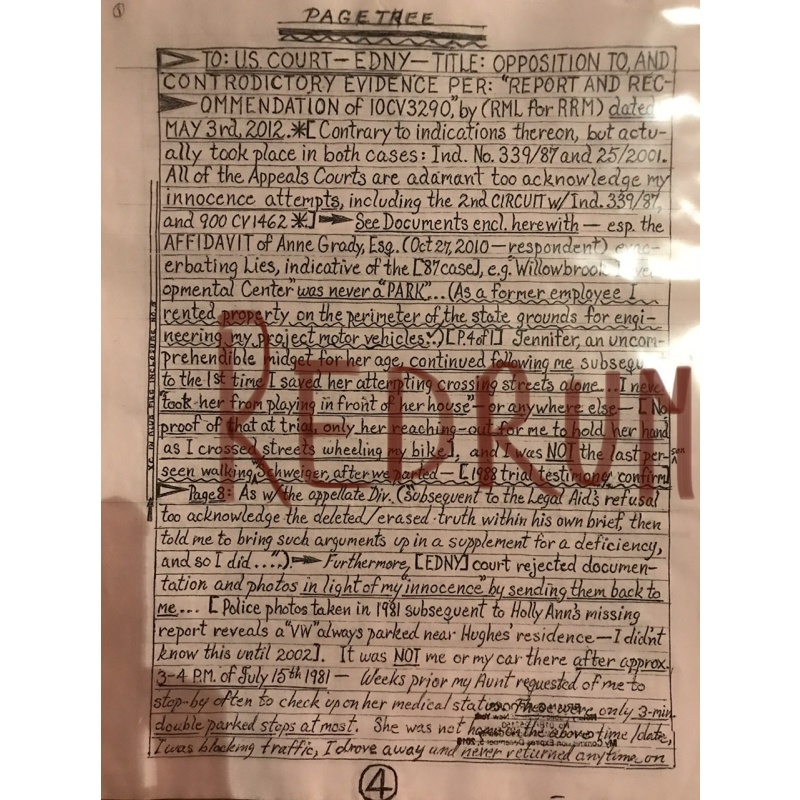 ①
PAGE THREE
TO: U.S. COURT — EDNY — TITLE: OPPOSITION TO, AND
CONTRODICTORY EVIDENCE PER: "REPORT AND REC-
OMMENDATION of 10CV3290," by (RML for RRM) dated
MAY 3rd, 2012. *[Contrary to indications thereon, but actu-
ally took place in both cases: Ind. No. 339/87 and 25/2001.
All of the Appeals Courts are adamant too acknowledge my
innocence attempts, including the 2nd CIRCUIT w/Ind. 339/87,
and 900 CV1462 *.] See Documents encl. herewith — esp. the
AFFIDAVIT of Anne Grady, Esq. (Oct 27, 2010 — respondent)
erbating Lies, indicative of the ['87 case], e.g. "Willowbrook
opmental Center" was never a "PARK"... (As a former employee I
rented property on the perimeter of the state grounds for engi-
neering my project motor vehicles.) [P.4 of 1] Jennifer, an uncom-
prehendible midget for her age, continued following me subsequ
to the 1st time I saved her attempting crossing streets alone... I never
"took her from playing in front of her house" — or anywhere else — [No
proof of that at trial, only her reaching-out for me to hold her hand
as I crossed streets wheeling my bike], and I was NOT the last person
seen walking Schweiger, after we parted — [1988 trial testimony confirm
Page 8: As w/ the appellate Div. ("Subsequent to the Legal Aid's refusal
too acknowledge the deleted/erased truth within his own brief, then
told me to bring such arguments up in a supplement for a deficiency,
and so I did....") Furthermore, [EDNY] court rejected documen-
tation and photos in light of my "innocence" by sending them back to
me... [Police photos taken in 1981 subsequent to Holly Ann's missing
report reveals a "VW" always parked near Hughes' residence — I didn't
know this until 2002]. It was NOT me or my car there after approx.
3-4 P.M. of July 15th 1981 — Weeks prior my Aunt requested of me to
stop-by often to check up on her medical status. These were only 3-min.
double parked stops at most. She was not home on the above time/date,
I was blocking traffic, I drove away and never returned anytime on
④
REDRUM